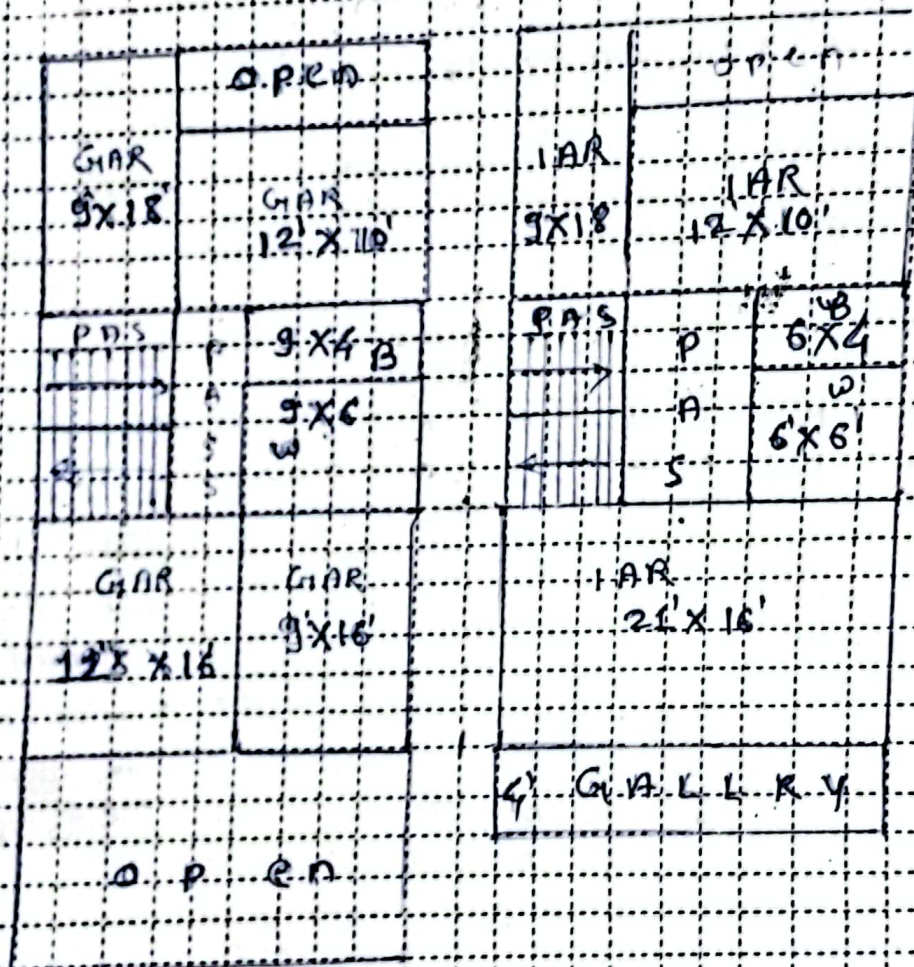 open
GAR
9'X18'
GAR
12' X 10'
PAS
PASS
9 X4 B
9 X6
W
GAR
12'5 X 16
GAR
9'X16'
open
open
1 AR
9X18
1 AR
12' X 10'
PAS
PAS
B
6 X4
W
6' X 6'
1 AR
21' X 16'
4' GALLRY